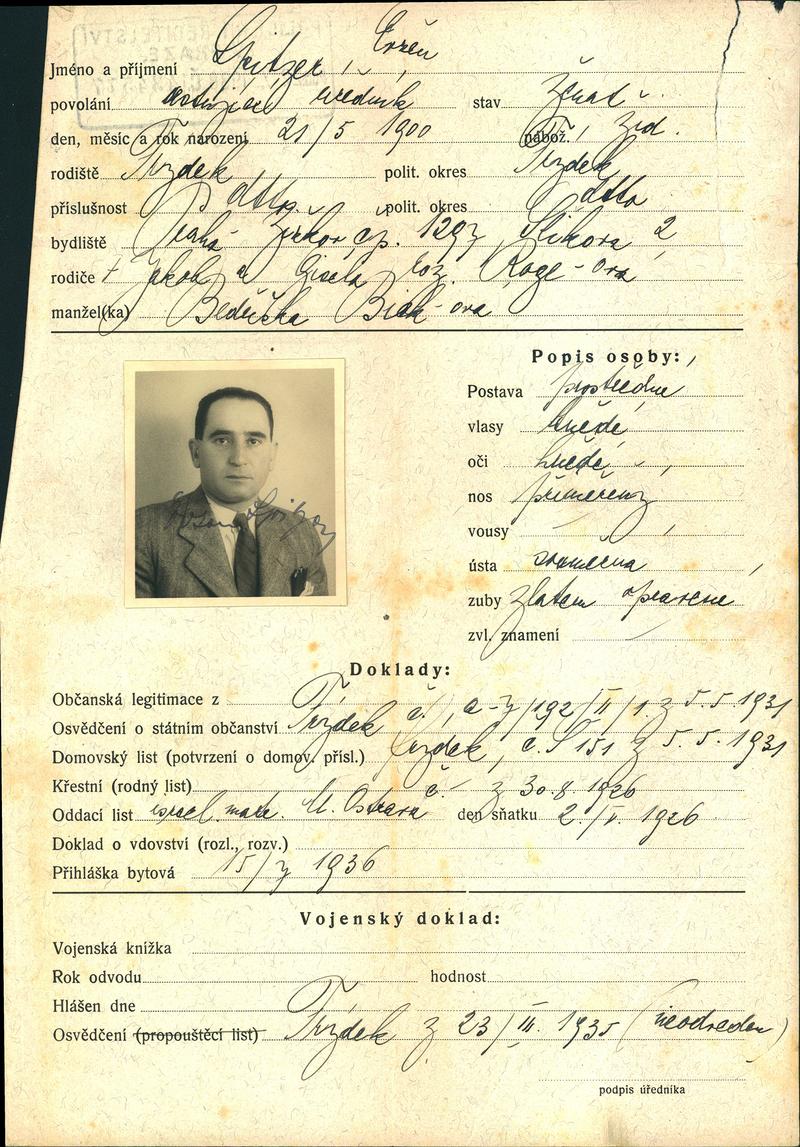 Jméno a příjmení Spitzer, Evžen
povolání úředník stav ženat
den, měsíc a rok narození 21/5 1900 nábož. žid.
rodiště Frýdek polit. okres Frýdek
příslušnost dtto polit. okres dtto
bydliště Praha Žižkov čp. 1297, Šlikova 2
rodiče † Jakob a Gisela roz.
manžel(ka) Bedřiška
Popis osoby:
Postava prostředne
vlasy hnědé
oči hnědé
nos přiměřený
vousy —
ústa souměrna
zuby zlatem opravene
zvl. znamení —
Doklady:
Občanská legitimace z
Osvědčení o státním občanství Frýdek č. z 5.5.1931
Domovský list (potvrzení o domov. přísl.) Frýdek, č. 151 z 5.5.1931
Křestní (rodný list) č. — z 30.8.1926
Oddací list israel. matr. M. Ostrava den sňatku 2./V. 1926
Doklad o vdovství (rozl., rozv.)
Přihláška bytová 15/7 1936
Vojenský doklad:
Vojenská knížka
Rok odvodu hodnost
Hlášen dne
Osvědčení (propouštěcí list) Frýdek z 23/III. 1935 (neodveden)
podpis úředníka